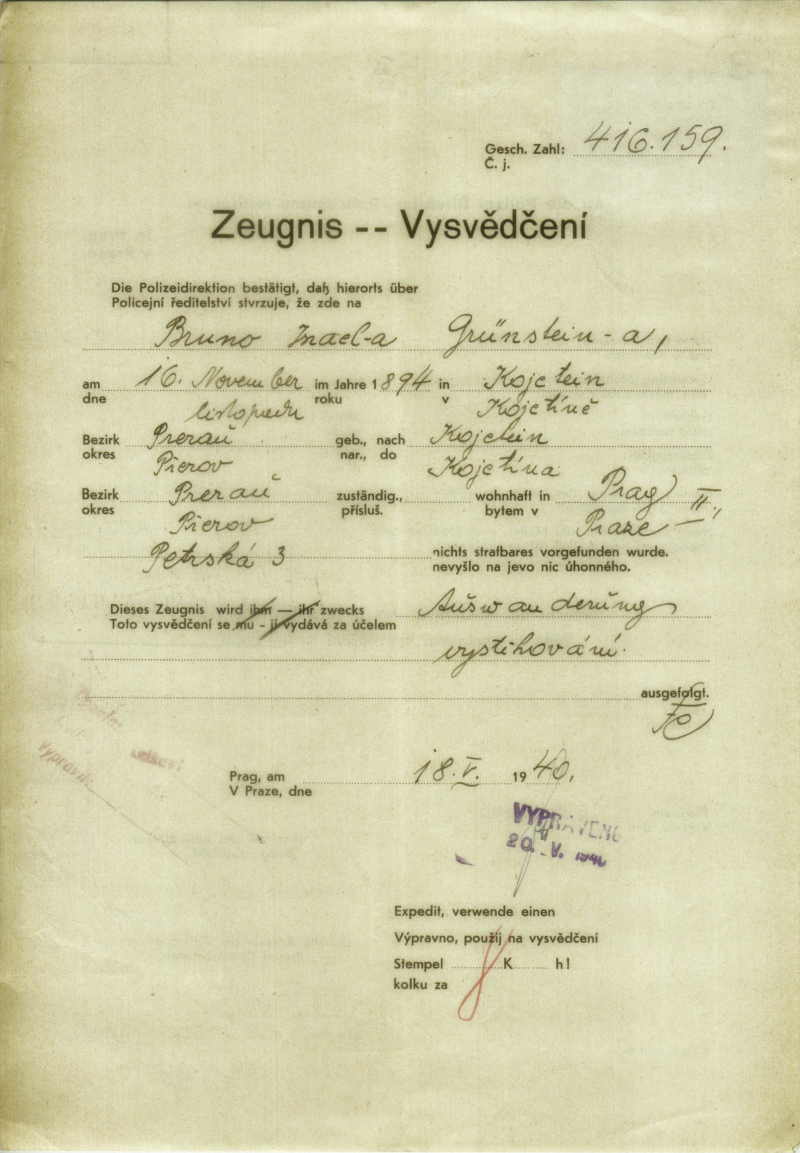 Gesch. Zahl: 416.159.
Č. j.
Zeugnis -- Vysvědčení
Die Polizeidirektion bestätigt, daß hierorts über
Policejní ředitelství stvrzuje, že zde na
Bruno Israel-a Grünstein-a,
am 16. November im Jahre 1894 in Kojetein
dne listopadu roku v Kojetíně
Bezirk Prerau geb., nach Kojetein
okres Přerov nar., do Kojetína
Bezirk Prerau zuständig., wohnhaft in Prag II.,
okres Přerov přísluš. bytem v Praze
Petrská 3 nichts strafbares vorgefunden wurde.
nevyšlo na jevo nic úhonného.
Dieses Zeugnis wird ihm — ihr zwecks Auswanderung
Toto vysvědčení se mu - jí vydává za účelem
vystěhování.
ausgefolgt.
Prag, am 18. V. 1940.
V Praze, dne
VYPRAVENO
20. V. 1940
Expedit, verwende einen
Výpravno, použij na vysvědčení
Stempel K h!
kolku za